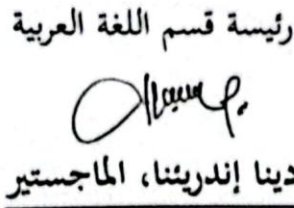 رئيسة قسم اللغة العربية
دينا إندريئنا، الماجستير